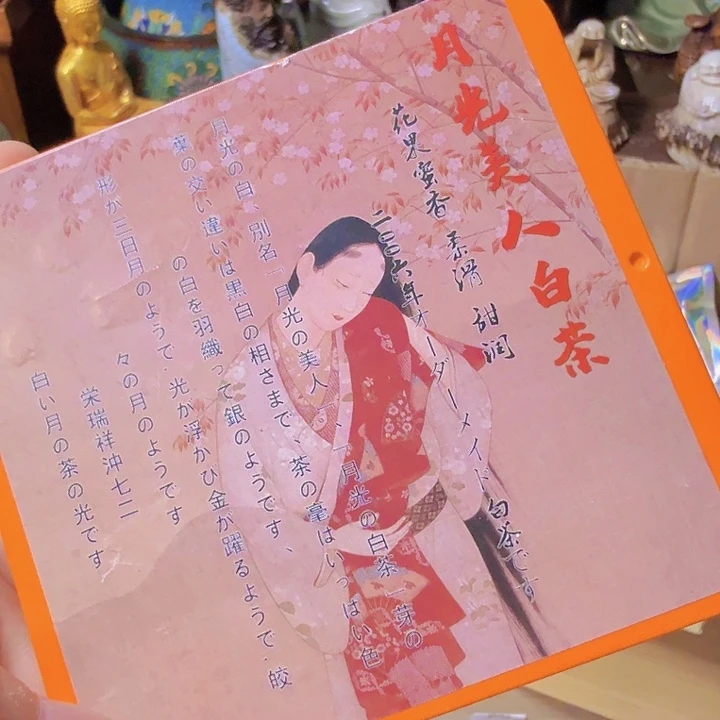 月光美人白茶
花果蜜香 柔滑 甜润
二〇〇六年オーダーメイド白茶です
月光の白、別名「月光の美人」、「月光の白茶」芽の
葉の交い違いは黒白の相さまで、茶の毫はいっぱい色
の白を羽織って銀のようです、
形が三日月のようで.光が浮かひ金が躍るようで.皎
々の月のようです
栄瑞祥沖七二
白い月の茶の光です